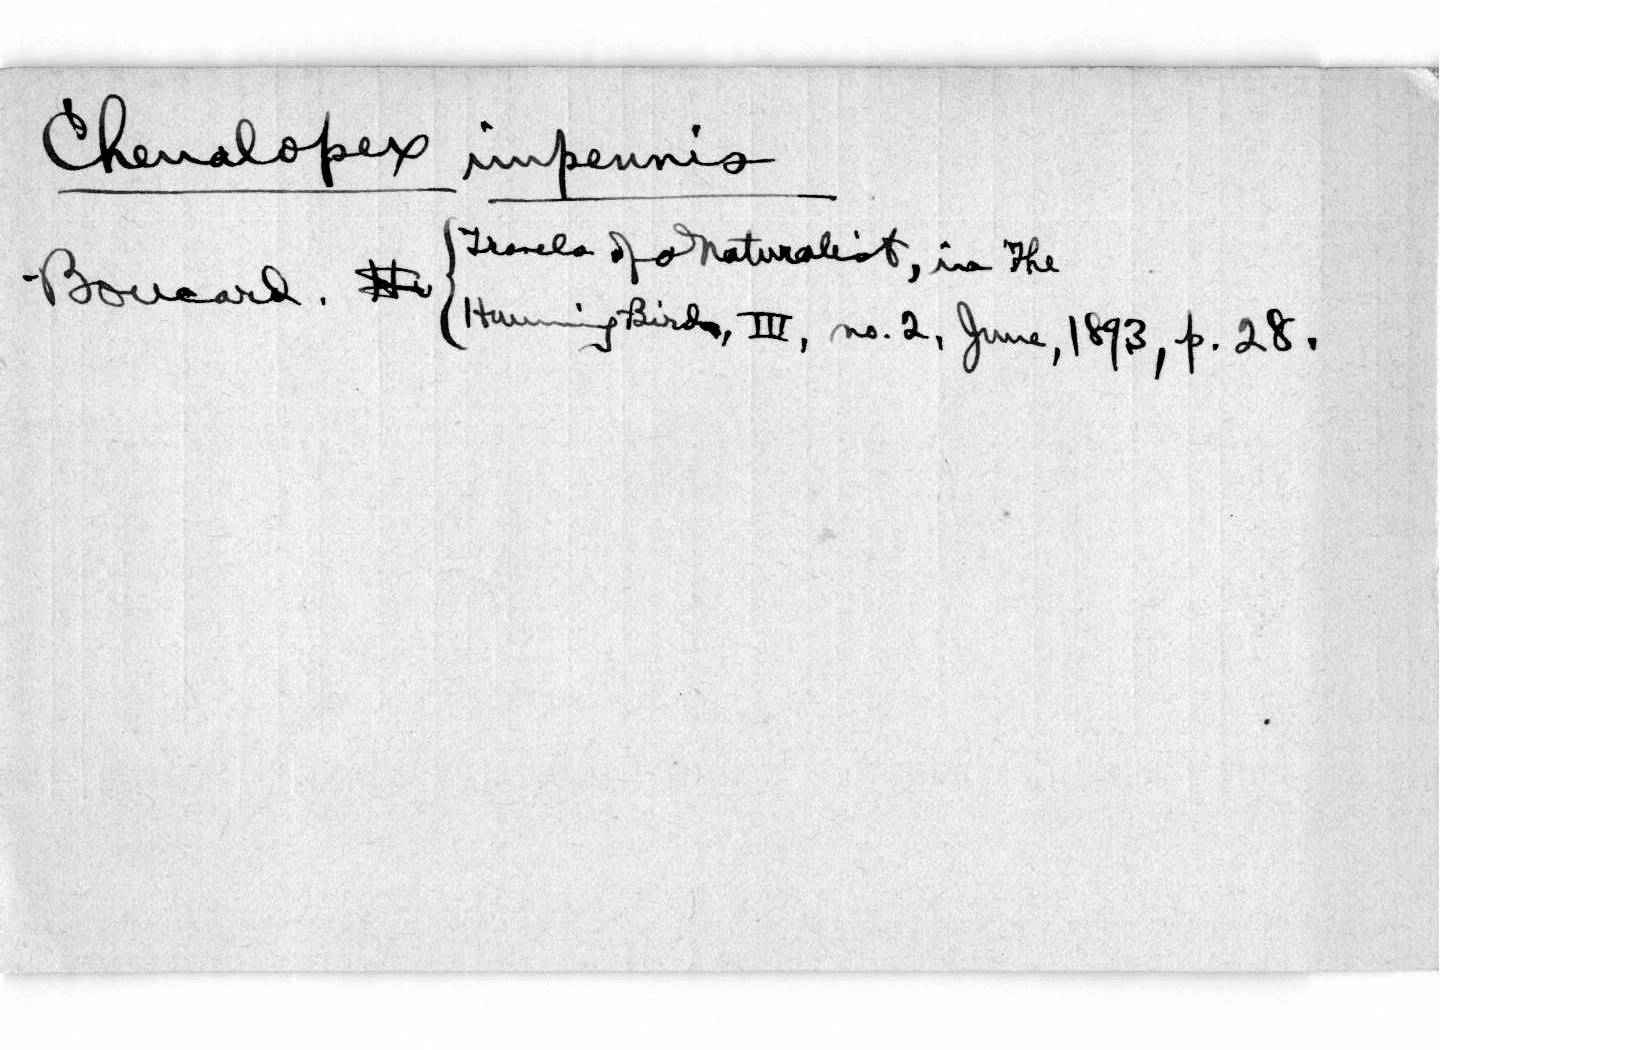 Chenalopex impennis
Boucard. { Travels of a Naturalist, in The
Humming Bird, III, no. 2, June, 1893, p. 28.